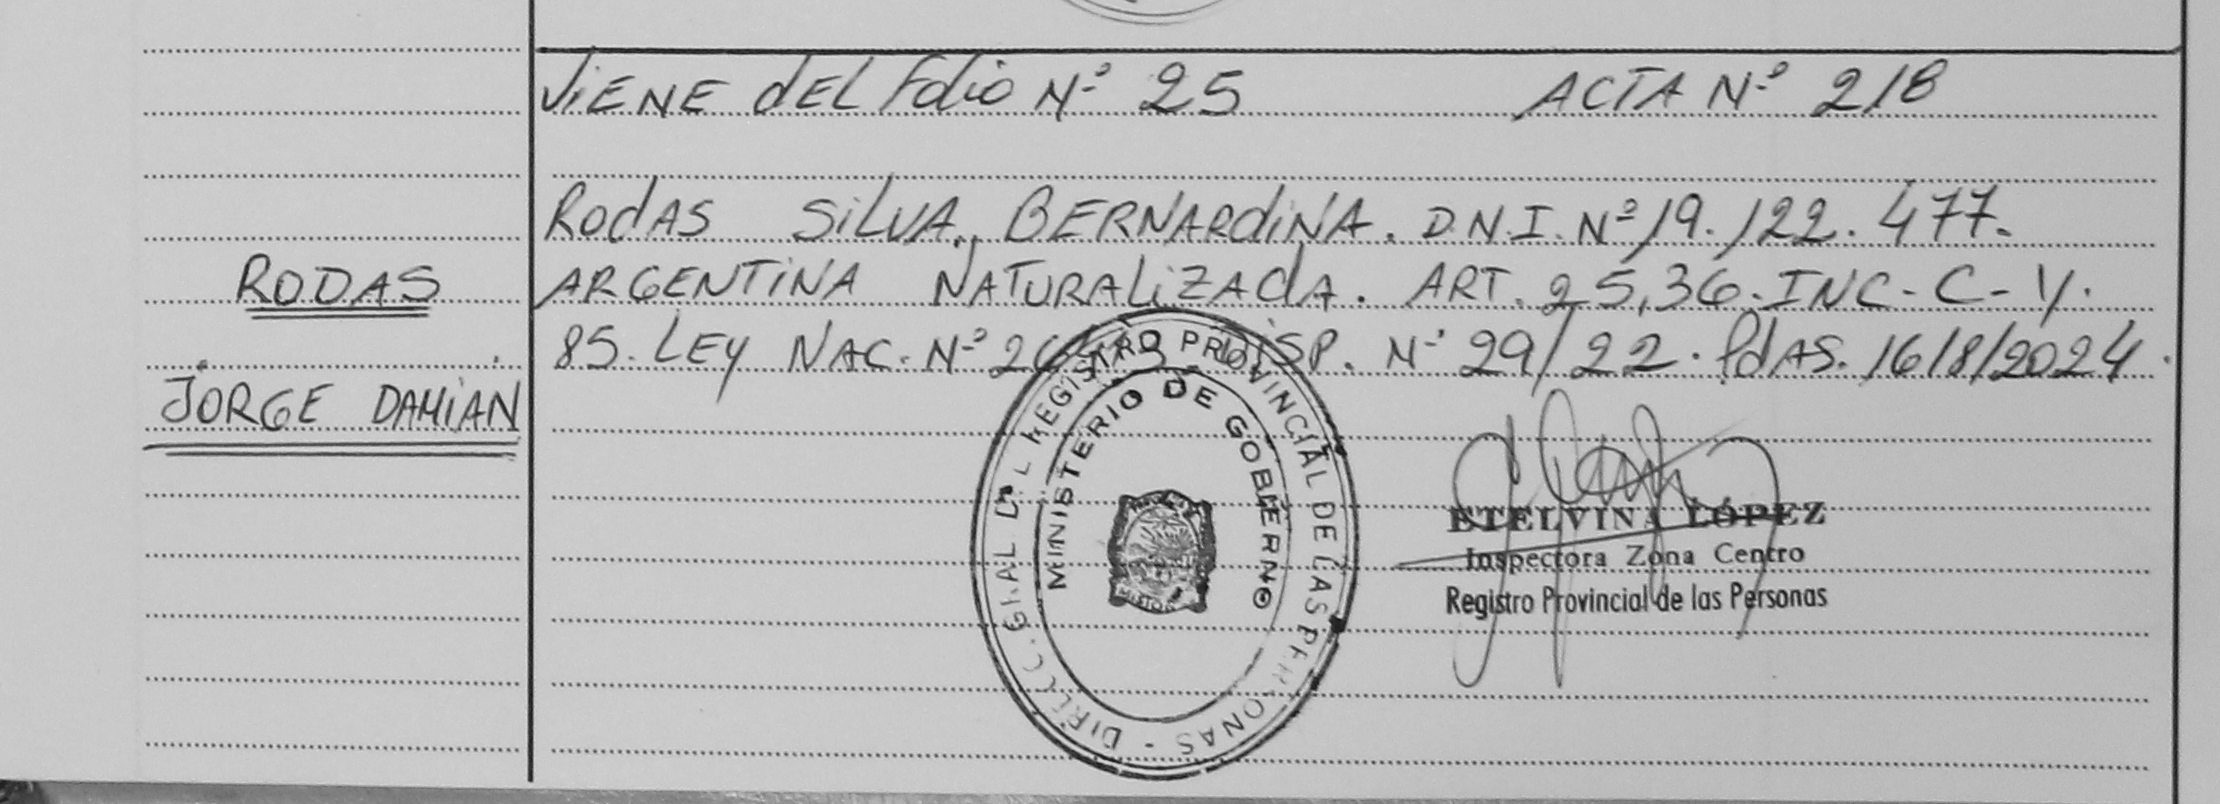 ViENE dEL Folio Nº 25 ACTA Nº 218
RodAS SiLVA, BERNARdiNA. D.N.I. Nº 19.122.477.
ARGENTiNA NATURALiZAdA. ART. 25,36. INC- C- Y.
85. LEY NAC. Nº DiSP. Nº 29/22. PdAS. 16/8/2024.
RODAS
JORGE DAMiAN
DIRECC. GRAL. DEL REGISTRO PROVINCIAL DE LAS PERSONAS -
MINISTERIO DE GOBIERNO
ETELVINA LÓPEZ
Inspectora Zona Centro
Registro Provincial de las Personas